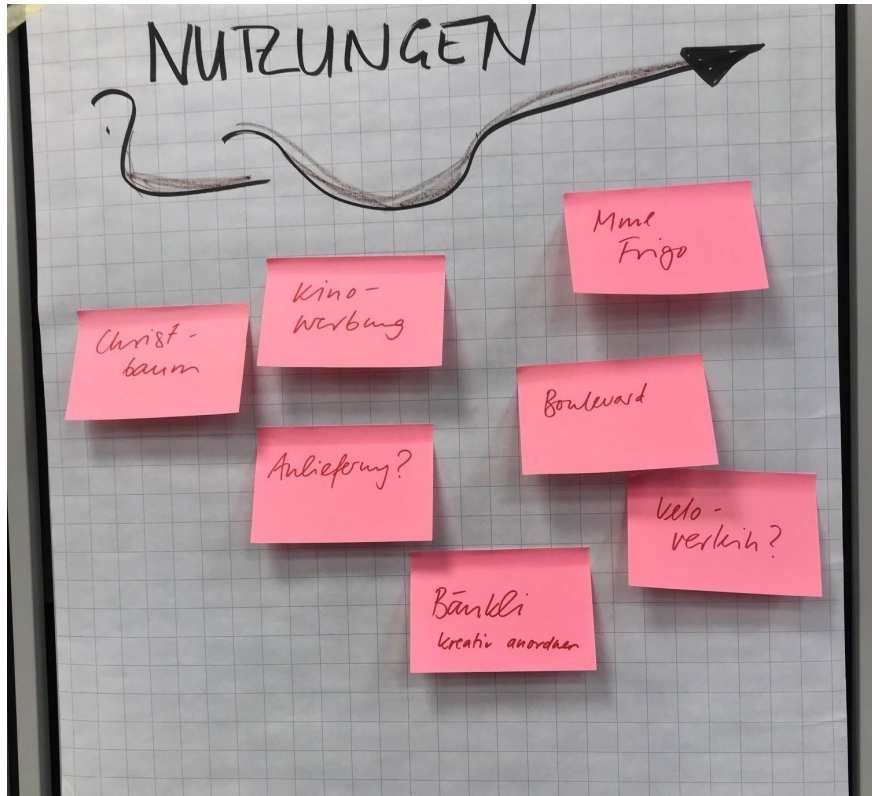 NUTZUNGEN
Mme
Frigo
Kino-
werbung
Christ-
baum
Boulevard
Anlieferung?
Velo-
verleih?
Bänkli
kreativ anordnen